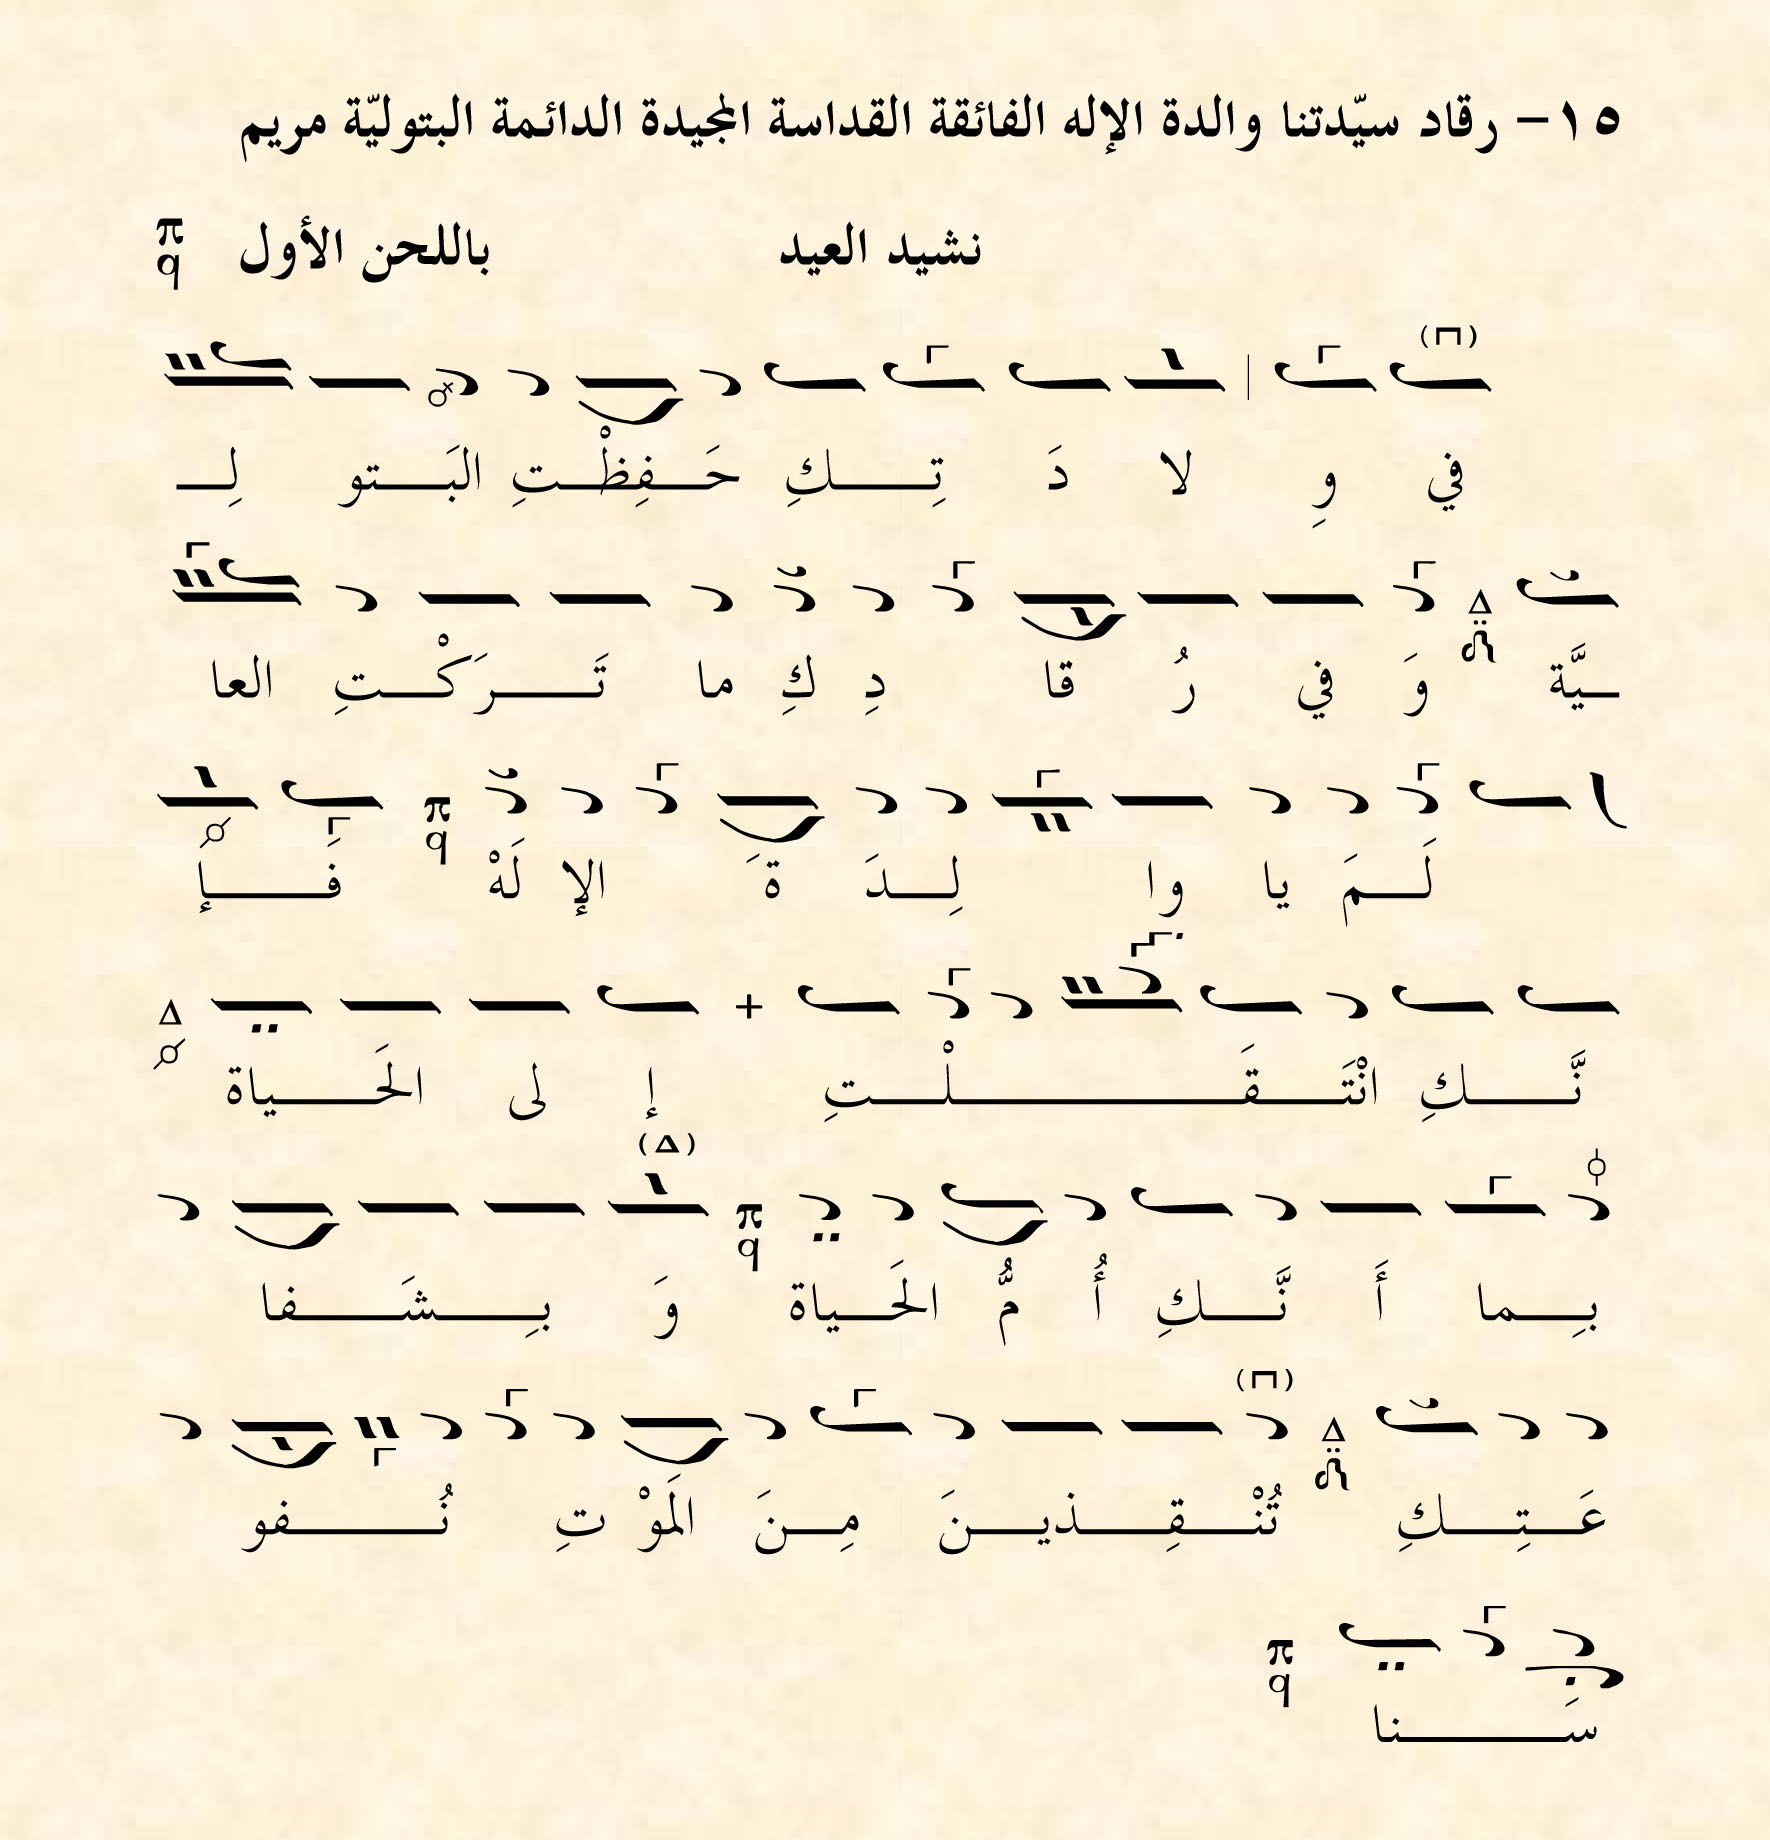 ١٥- رقاد سيّدتنا والدة الإله الفائقة القداسة المجيدة الدائمة البتوليّة مريم
نشيد العيد باللحن الأول π q
(Π)
في وِ لا دَ تِـــكِ حَــفِظْــتِ البَــتو لِــ
ـيَّة Δ وَ في رُ قا دِ كِ ما تَــرَكْــتِ العا
لَــمَ يا وا لِــدَ ةَ الإ لَهْ π q فَــإِ
نَّــكِ انْتَــقَــلْــتِ + إ لى الحَــياة Δ
(Δ)
بِــما أَ نَّــكِ أُ مُّ الحَــياة π q وَ بِــشَــفا
(Π)
عَــتِــكِ Δ تُنْــقِــذيــنَ مِــنَ المَوْ تِ نُــفو
سَــنا π q